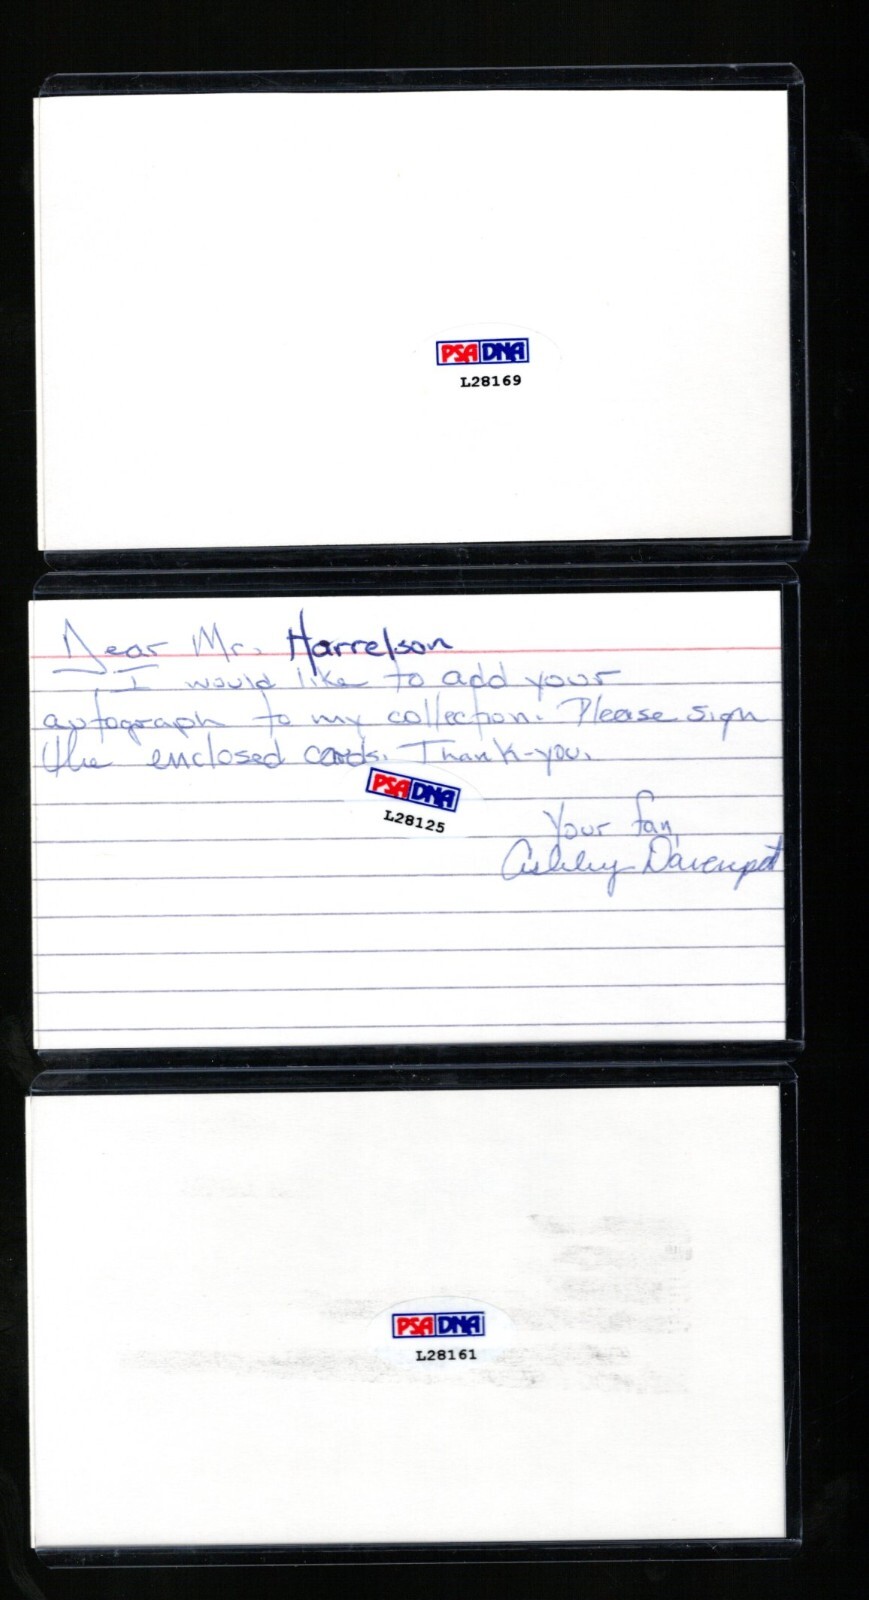 PSA DNA
L28169
Dear Mr. Harrelson
I would like to add your
autograph to my collection. Please sign
the enclosed cards. Thank-you.
PSA DNA
L28125
Your fan,
Ashley Davenport
PSA DNA
L28161